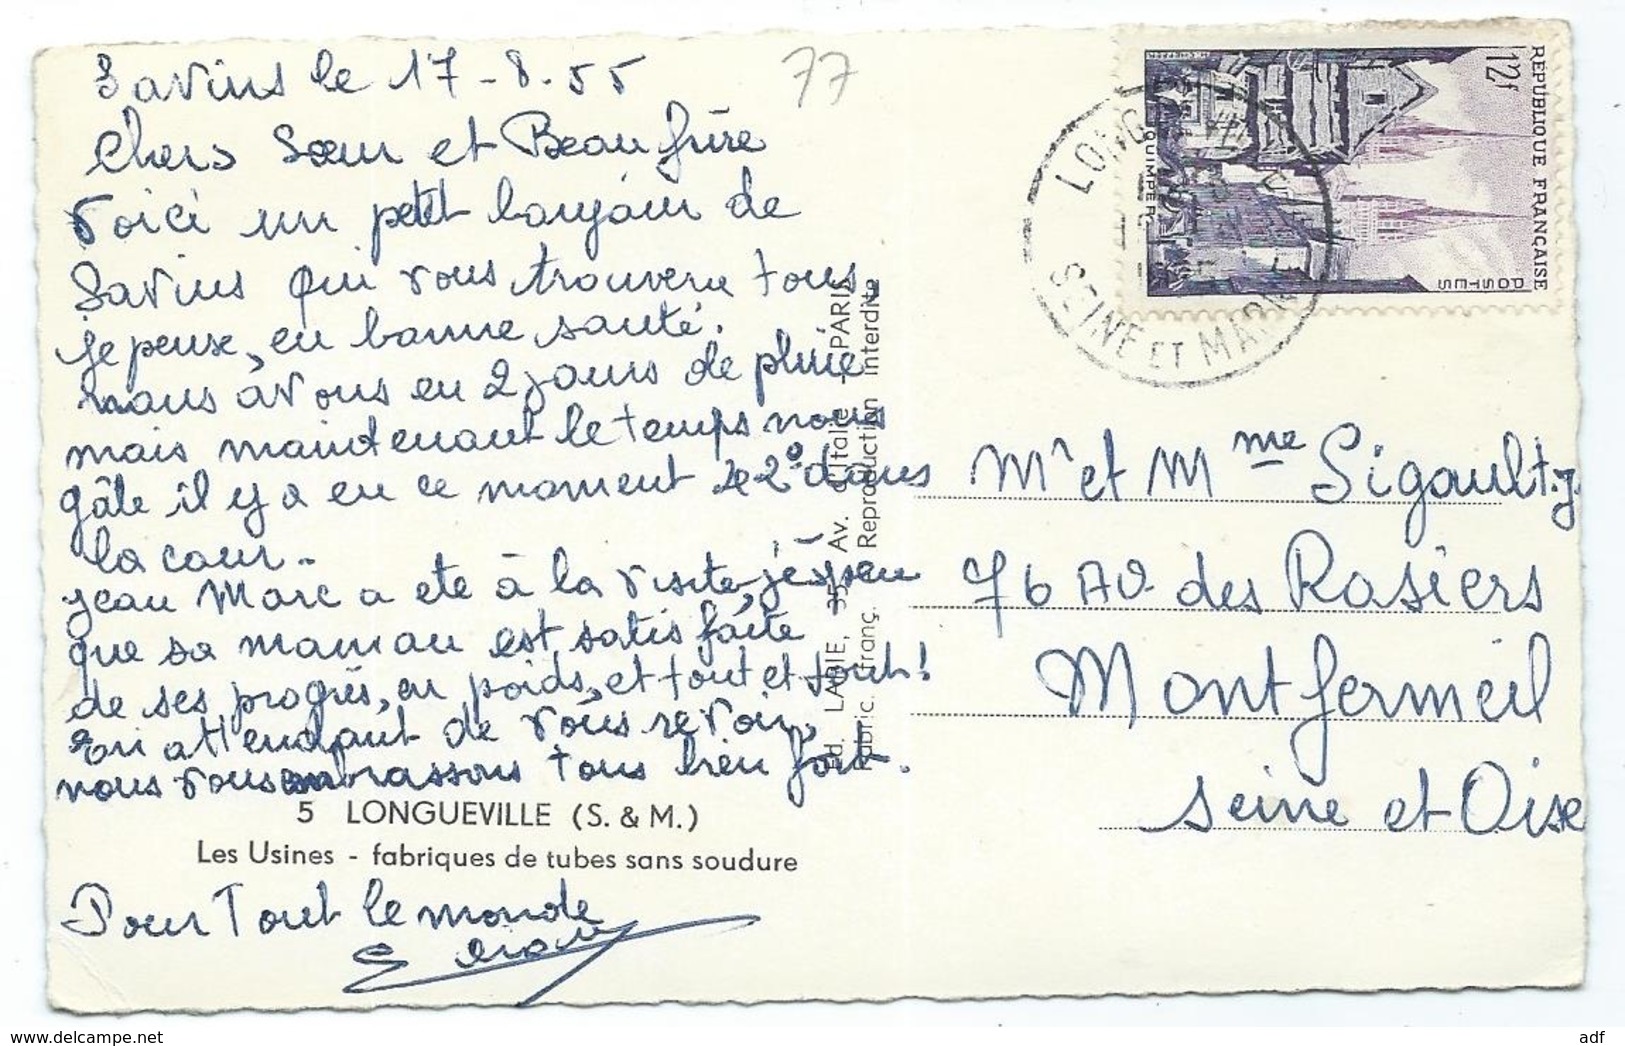 Savins le 17-8-55
77
Chers Sœur et Beau frère
Voici un petit bonjour de
Savins qui vous trouvera tous,
je pense, en bonne santé.
nous avons eu 2 jours de pluie
mais maintenant le temps nous
gâte il y a en ce moment 42° dans
la cour.
Jean Marc a été à la visite, je pense
que sa maman est satisfaite
de ses progrès, en poids, et tout et tout!
En attendant de vous revoir,
nous vous embrassons tous bien fort.
5 LONGUEVILLE (S. & M.)
Les Usines - fabriques de tubes sans soudure
Pour Tout le monde
Ed. LAPIE, 35, Av. d'Italie - PARIS
Fabric. franç. Reproduction interdite
REPUBLIQUE FRANÇAISE
12f
POSTES
QUIMPER
SEINE ET MARNE
Mr et Mme Sigault J.
76 Av. des Rosiers
Montfermeil
Seine et Oise
adf
www.delcampe.net